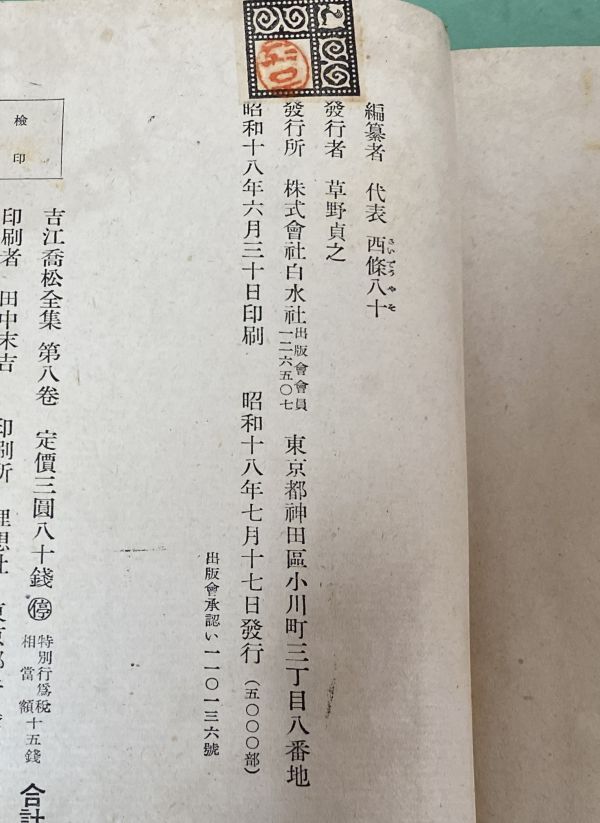 編纂者 代表 西條八十
さいでうやそ
發行者 草野貞之
發行所 株式會社白水社 出版會會員 一二六五〇七 東京都神田區小川町三丁目八番地
昭和十八年六月三十日印刷 昭和十八年七月十七日發行(五〇〇〇部)
出版會承認い一一〇一三六號
檢印
吉江喬松全集 第八卷 定價三圓八十錢 停 特別行爲稅相當額十五錢 合計
印刷者 田中末吉 印刷所 理想社 東京都